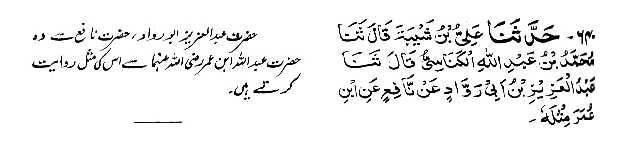 ۶۴۰- حَدَّثَنَا عَلِیُّ بْنُ شَیْبَةَ قَالَ ثَنَا
مُحَمَّدُ بْنُ عَبْدِ اللهِ الْکُنَاسِیُّ قَالَ ثَنَا
عَبْدُ الْعَزِیْزِ بْنُ اَبِیْ رَوَّادٍ عَنْ نَّافِعٍ عَنِ ابْنِ
عُمَرَ مِثْلَهٗ -
حضرت عبدالعزیز ابو رواد، حضرت نافع سے وہ
حضرت عبداللہ ابن عمر رضی اللہ عنہما سے اس کی مثل روایت
کرتے ہیں۔